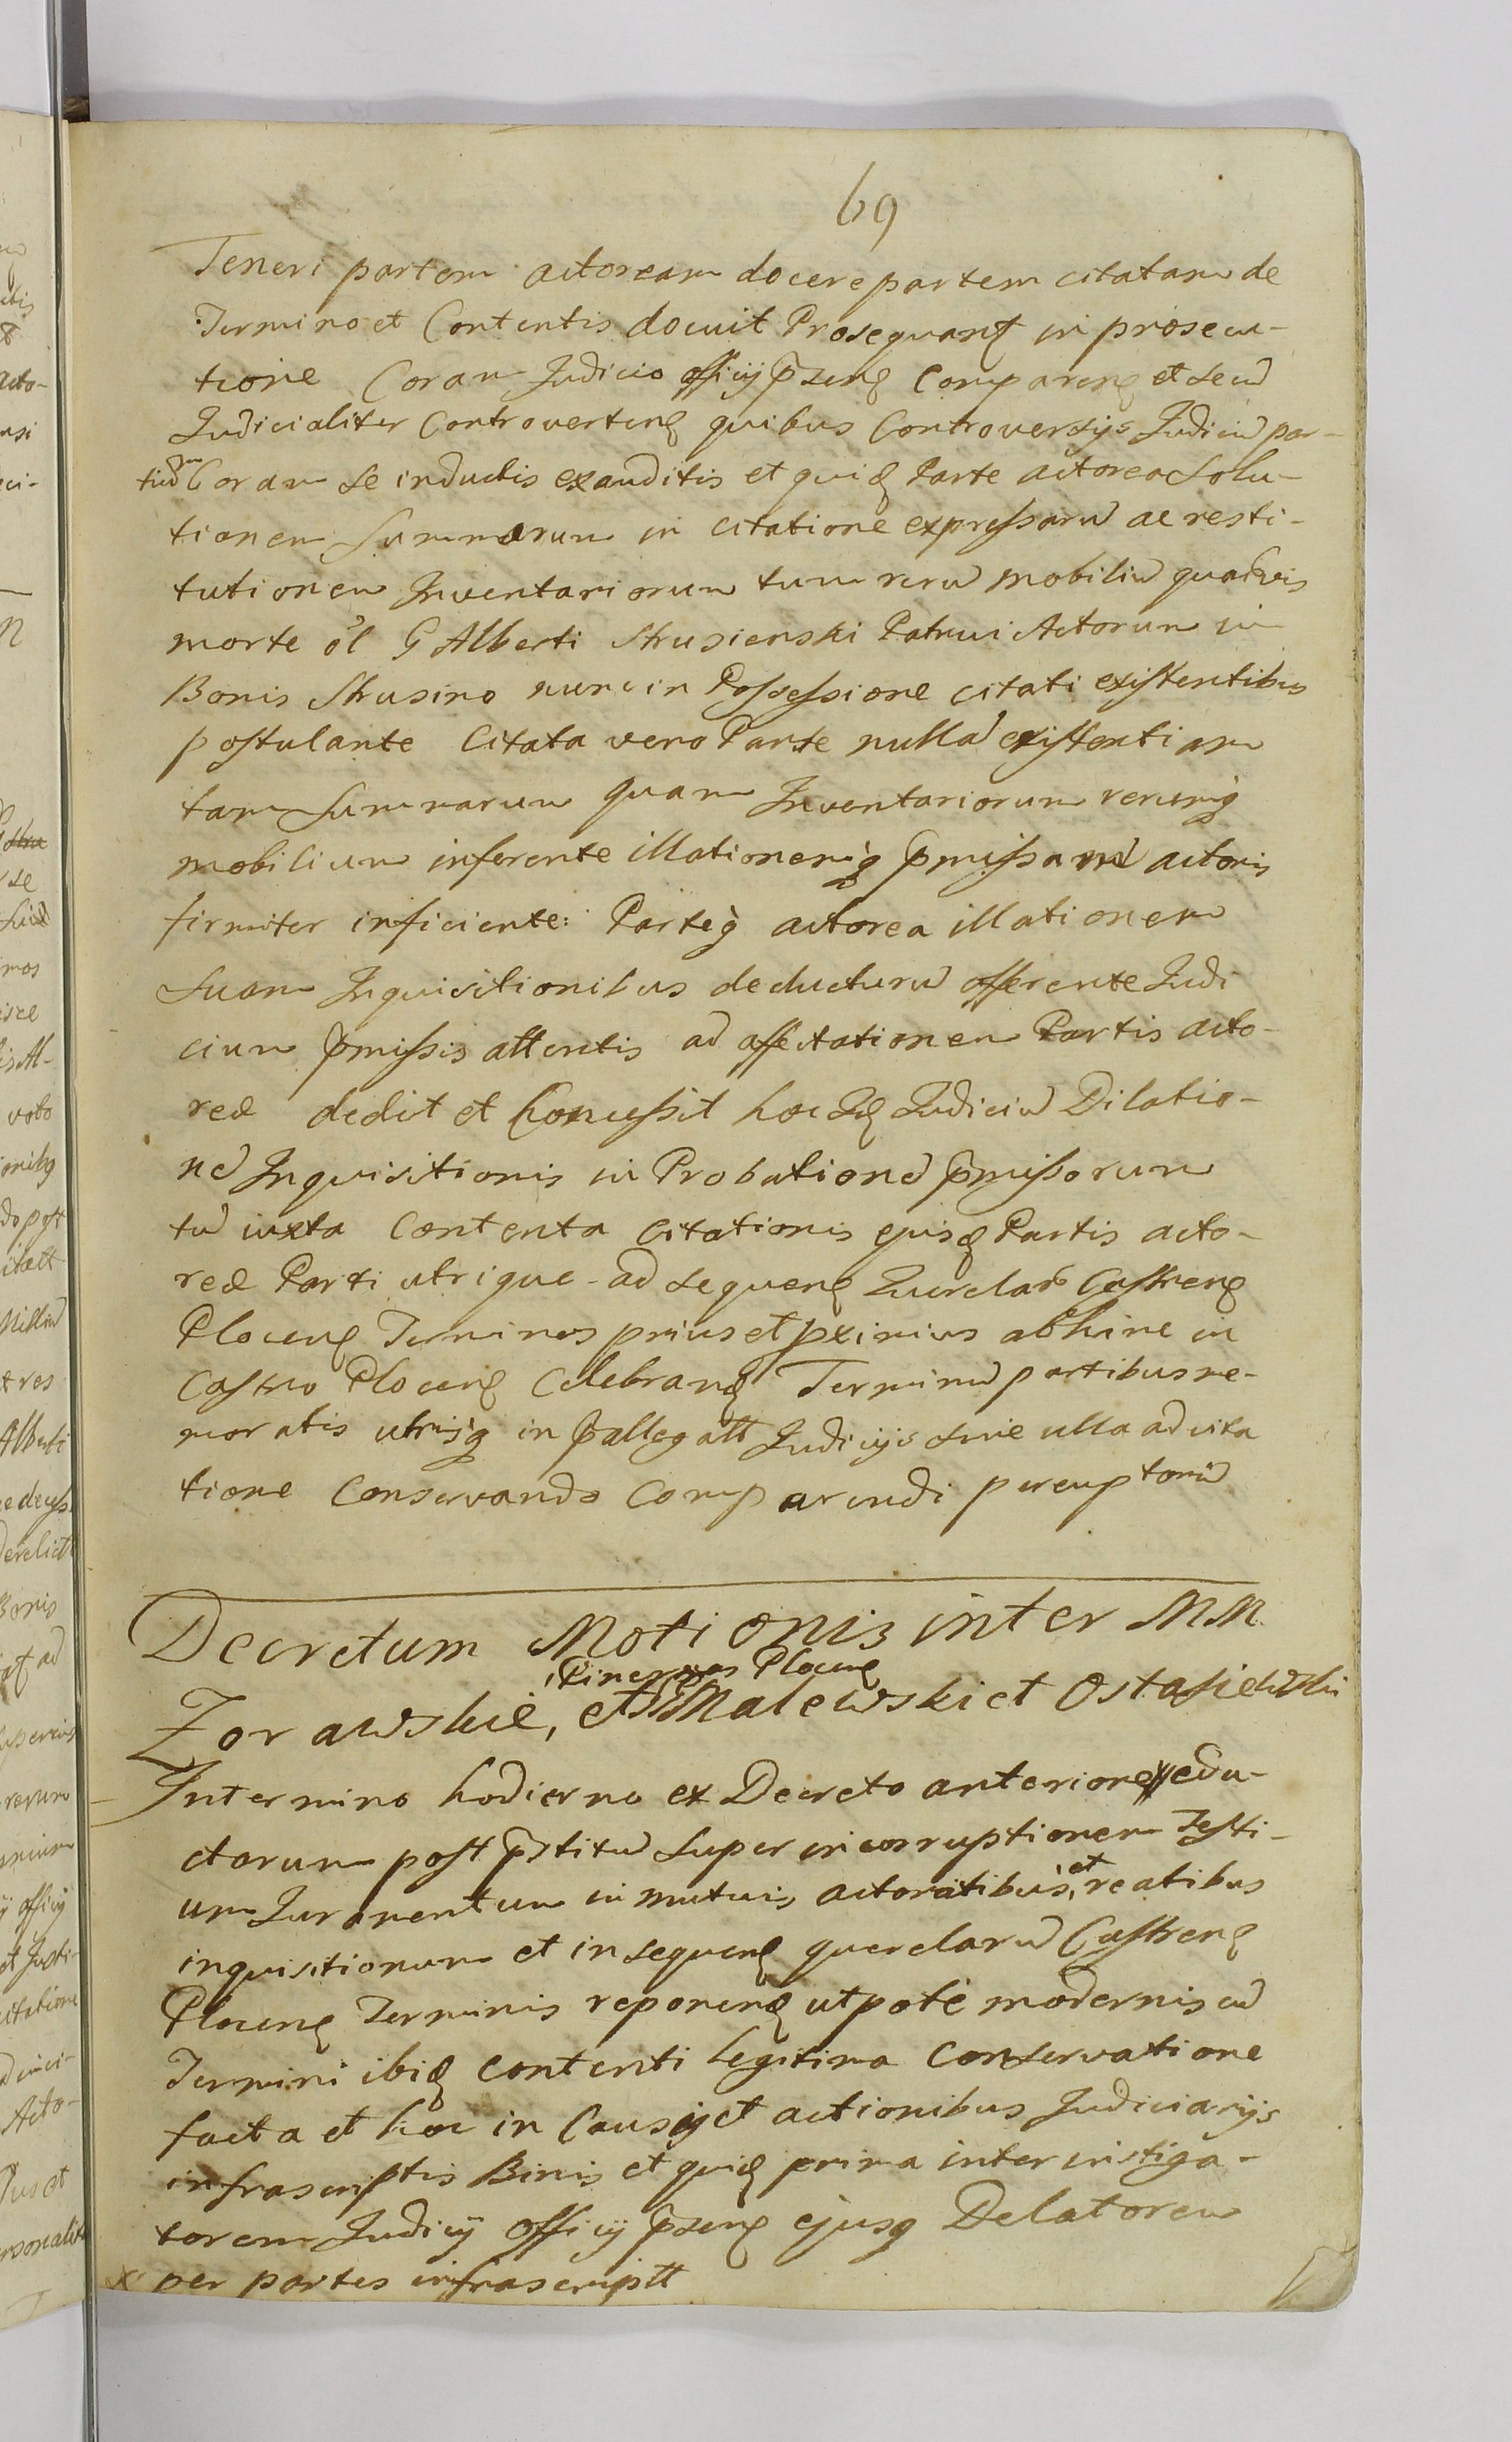 69
Teneri partem actoream docere partem citatam de
Termino et Contentis docuit Prosequant in prosecu-
tione Coram Judicio officij pr̃sens Comparens et secũ
Judicialiter Controvertens quibus Controversijs Judiciũ par-
tiũ Coram se inductis exauditis et quidẽ Parte actorea solu-
tionem summarum in citatione expressarũ ac resti-
tutionem Inventariorum tum rerũ mobiliũ quarũvis
morte ol G Alberti Strusienski Patrui Actorum in
Bonis Strusino nunc in Possessione citati existentibus
postulante Citata vero Parte nullã existentiam
tam summarum quam Inventariorum rerumq
mobilium inferente illationemq p̃missam actoris
firmiter inficiente: Parteq actorea illationem
suam Inquisitionibus deducturũ offerente Judi
cium p̃missis attentis ad affectationem Partis acto-
reæ dedit et Concessit hoc Idẽ Judiciũ Dilatio-
nẽ Inquisitionis in Probationẽ p̃missorum
tũ iuxta Contenta Citationis ejusdẽ Partis acto-
reæ Parti utrique ad sequens Querelarũ Castrens
Plocens Terminos prius et pximius abhinc in
Castro Plocens Celebrand Terminũ partibus me-
moratis utrisq in p̃allegatt Judicijs sine ulla adcita
tione Conservando Comparendi peremptoriũ
Decretum Motionis inter MM
Pincernas Plocens
Zorawskie, et Malewski et Ostaszewski
In termino hodierno ex Decreto anteriore edu-
ctorum post p̃stitũ super incorruptionem Testi-
um Juramentum in mutuis actoratibus, et reatibus
inquisitionum et in sequens querelarũ Castrens
Plocens Terminis reponend utpote modernis cũ
Termini ibidẽ contenti legitima Conservatione
facta et hoc in Causis et actionibus Judiciarijs
infrascriptis Binis et quidẽ prima inter instiga-
torem Judicij Officij p̃sens ejusq Delatorem
x per partes infrascriptt